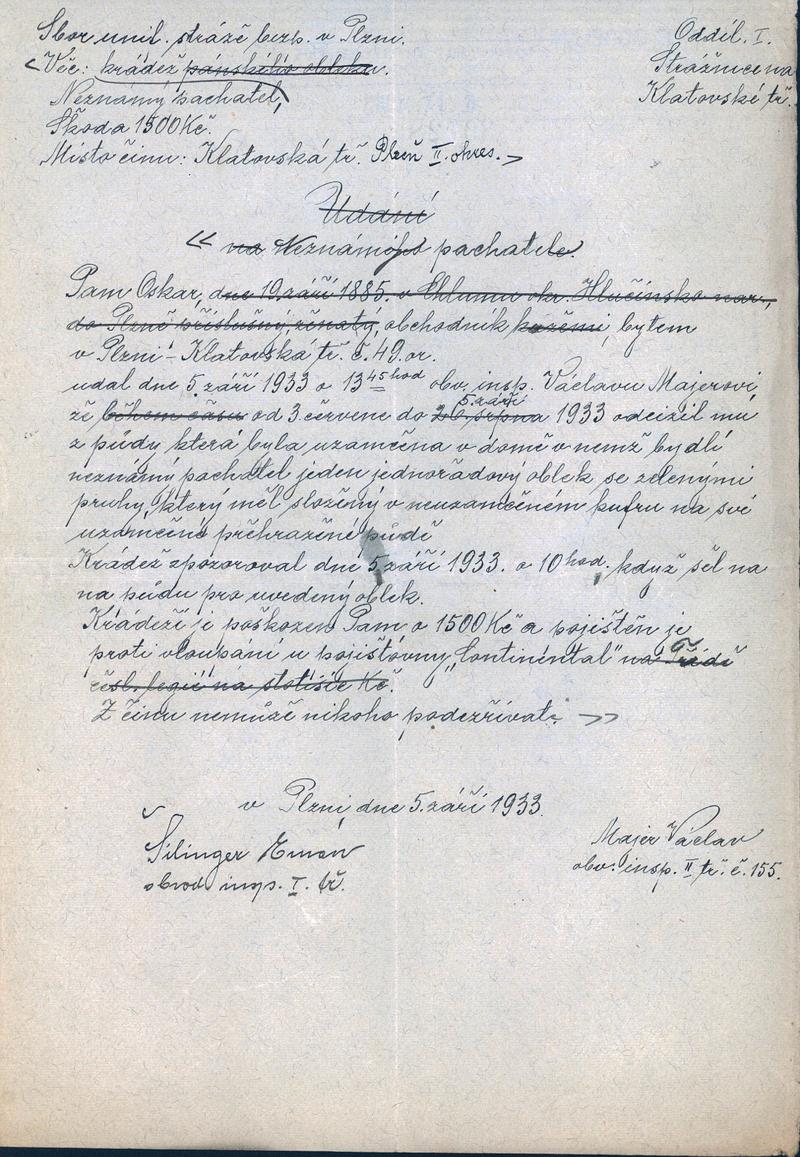 Sbor unif. stráže bezp. v Plzni.
Oddíl. I.
Věc: krádež pánského obleku.
Strážnice na
Neznámý pachatel,
Klatovské tř.
Škoda 1500 Kč.
Místo činu: Klatovská tř. Plzeň II. okres.
Udání
na Neznámého pachatele.
Pam Oskar, dne 19. září 1885. v Chlumu okr. Hlučínsko nar.,
do Plzně příslušný, ženatý, obchodník kožemi, bytem
v Plzni - Klatovská tř. č. 49. or.
udal dne 5. září 1933 o 13 45 hod obv. insp. Václavu Majerovi,
že během času od 3 července do 26. srpna 5. září 1933 odcizil mu
z půdy která byla uzamčena v domě v nemž bydlí
neznámý pachatel jeden jednořadový oblek se zelenými
pruhy, který měl složený v neuzamčeném kufru na své
uzamčené přehražené půdě
Krádež zpozoroval dne 5. září 1933. o 10 hod., když šel na
na půdu pro uvedený oblek.
Krádeží je poškozen Pam o 1500 Kč a pojištěn je
proti vloupání u pojišťovny „Continental" na Třídě
čsl. legií na stotisíc Kč.
Z činu nemůže nikoho podezřívat.
v Plzni, dne 5. září 1933.
Šilinger
Majer Václav
obvod. insp. I. tř.
obv. insp. II tř. č. 155.